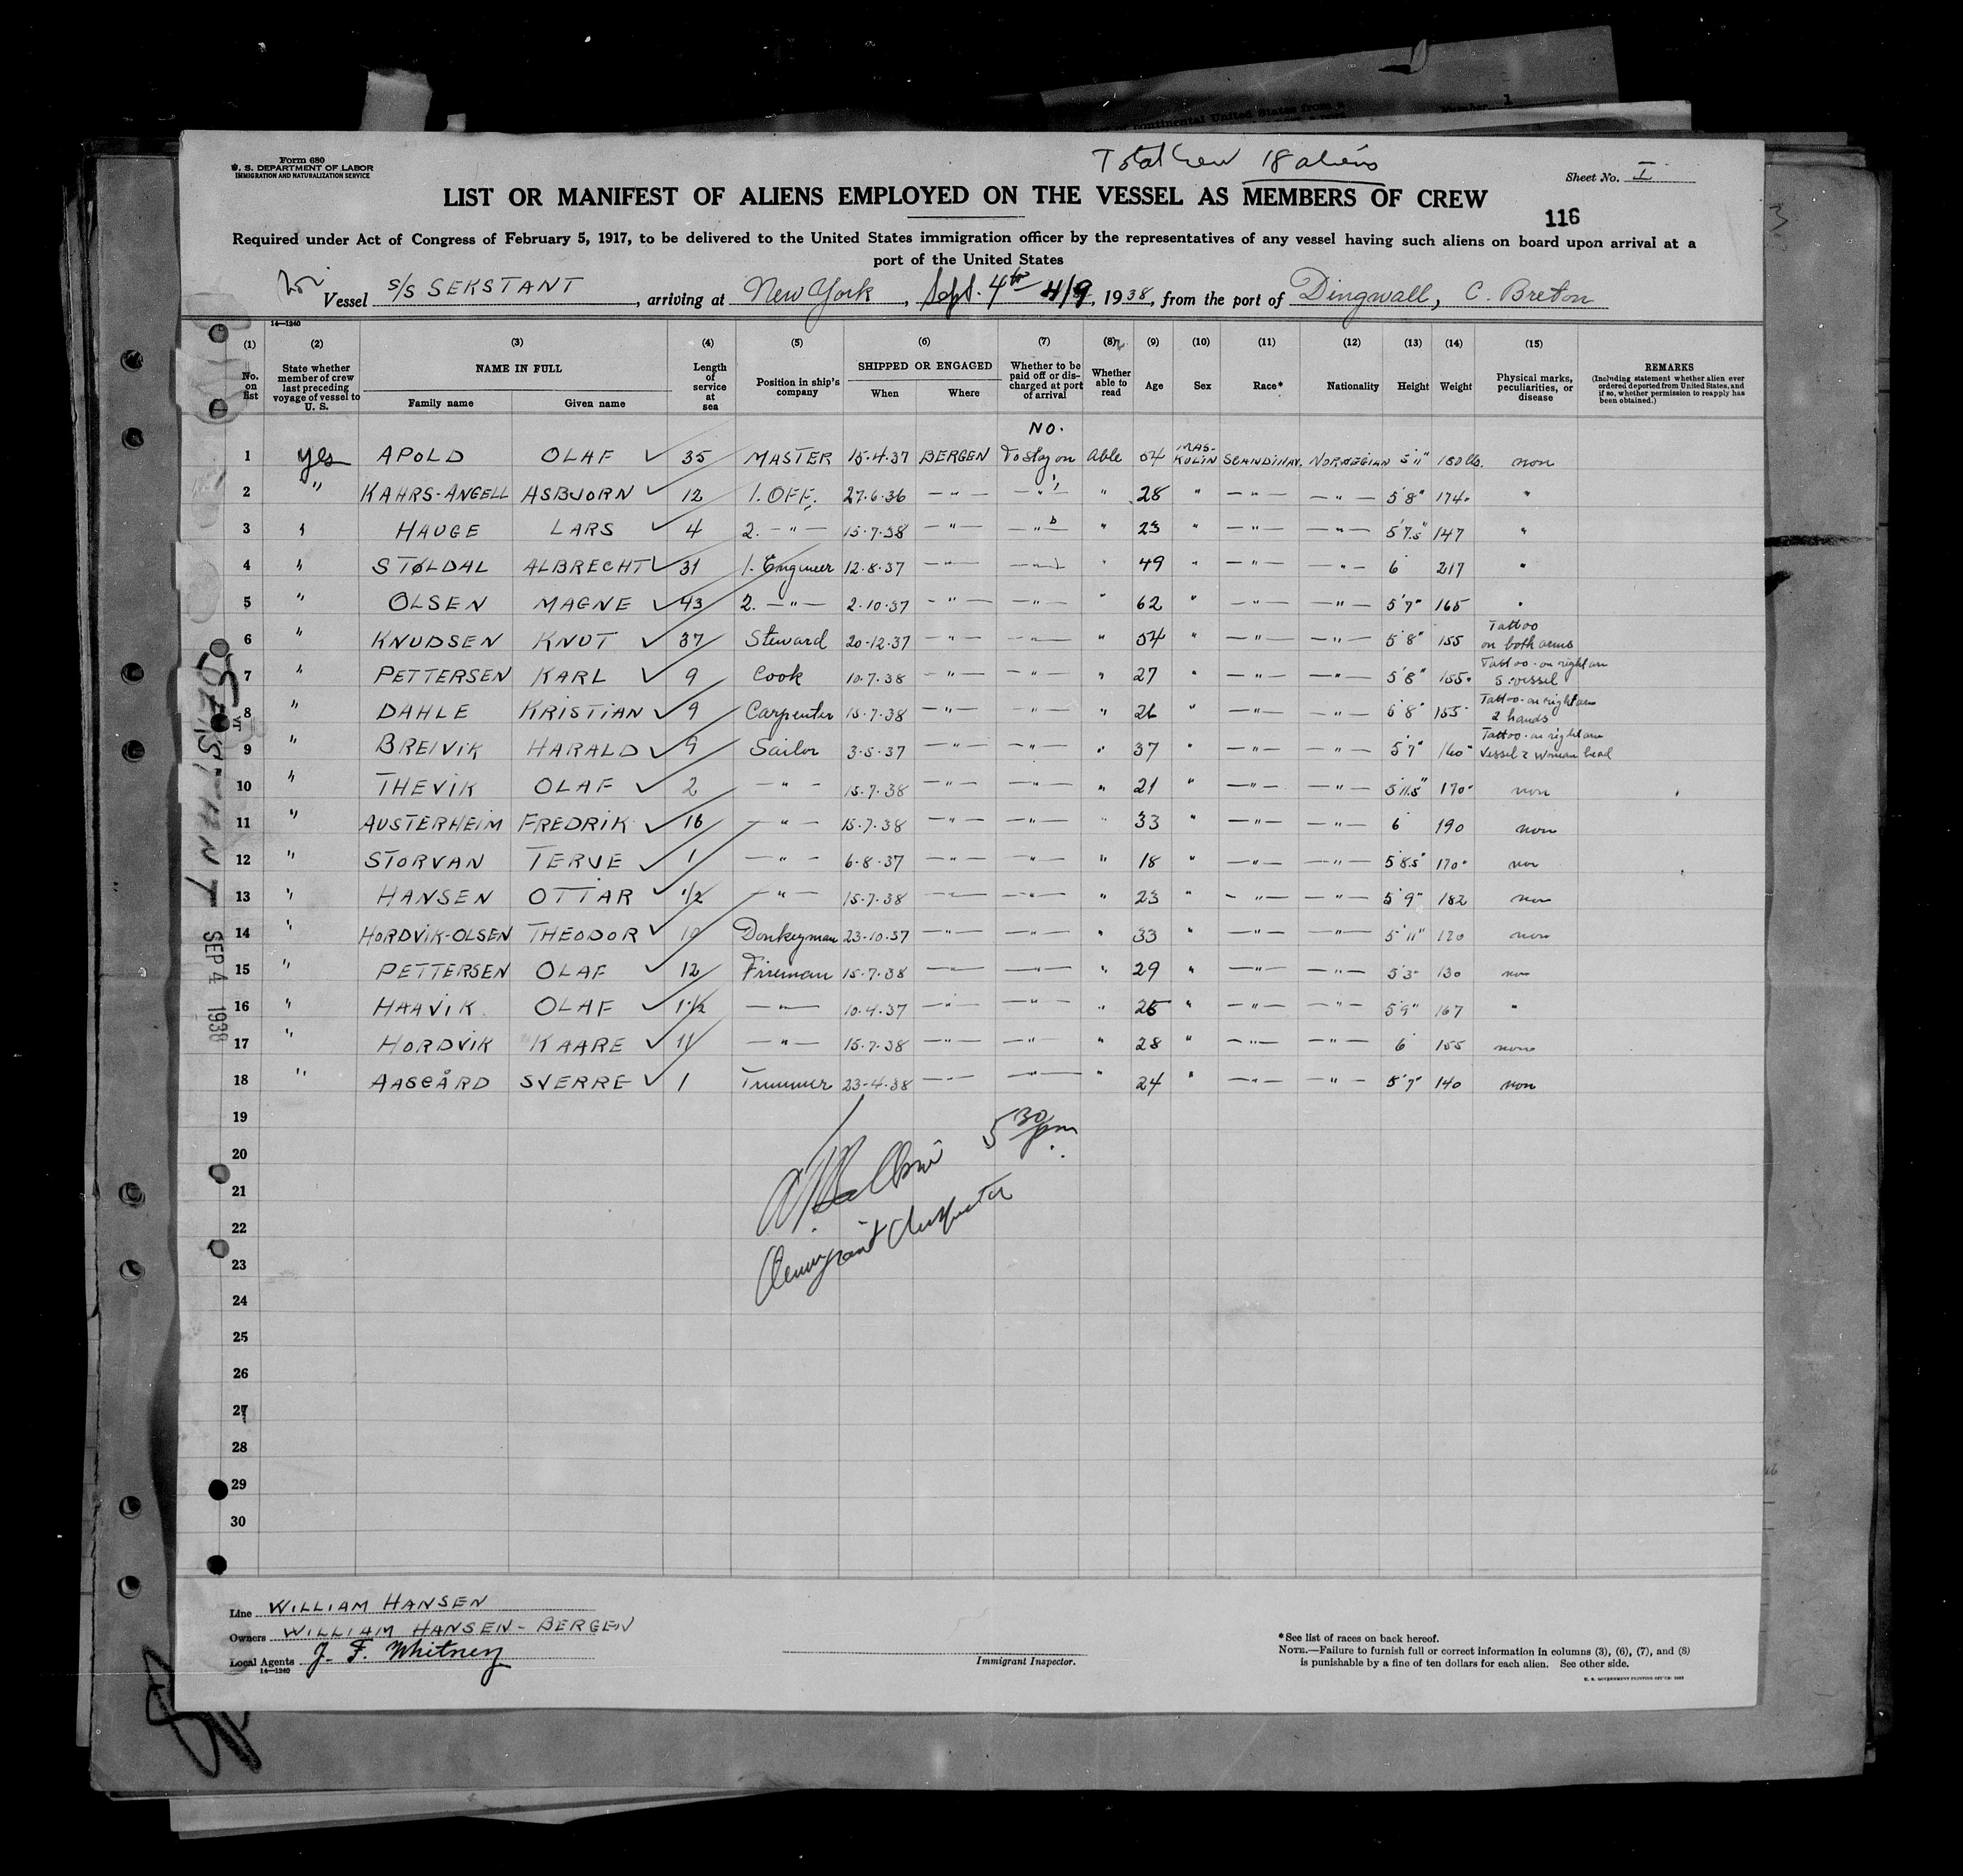 Form 680
U. S. DEPARTMENT OF LABOR
IMMIGRATION AND NATURALIZATION SERVICE
Total Crew 18 aliens
Sheet No. I
LIST OR MANIFEST OF ALIENS EMPLOYED ON THE VESSEL AS MEMBERS OF CREW
116
Required under Act of Congress of February 5, 1917, to be delivered to the United States immigration officer by the representatives of any vessel having such aliens on board upon arrival at a
port of the United States
Vessel S/S SEKSTANT, arriving at New York, Sept. 4th 4/9, 1938, from the port of Dingwall, C. Breton
14—1240
(1) (2) (3) (4) (5) (6) (7) (8) (9) (10) (11) (12) (13) (14) (15)
No. on list State whether member of crew last preceding voyage of vessel to U. S. NAME IN FULL Family name Given name Length of service at sea Position in ship's company SHIPPED OR ENGAGED When Where Whether to be paid off or discharged at port of arrival Whether able to read Age Sex Race* Nationality Height Weight Physical marks, peculiarities, or disease REMARKS (Including statement whether alien ever ordered deported from United States, and if so, whether permission to reapply has been obtained.)
NO.
1 yes APOLD OLAF ✓ 35 MASTER 15.4.37 BERGEN To stay on Able 54 MAS-KULIN SCANDINAV. NORWEGIAN 5'11" 180 lbs. non
2 " KAHRS-ANGELL ASBJORN ✓ 12 1. OFF. 27.6.36 —"— —"— " 28 " —"— —"— 5'8" 174 "
3 " HAUGE LARS ✓ 4 2. —"— 15.7.38 —"— —"— " 23 " —"— —"— 5'7.5" 147 "
4 " STØLDAL ALBRECHT ✓ 31 1. Engineer 12.8.37 —"— —"— " 49 " —"— —"— 6 217 "
5 " OLSEN MAGNE ✓ 43 2. —"— 2.10.37 —"— —"— " 62 " —"— —"— 5'7" 165 "
6 " KNUDSEN KNUT ✓ 37 Steward 20.12.37 —"— —"— " 54 " —"— —"— 5'8" 155 Tattoo on both arms
7 " PETTERSEN KARL ✓ 9 Cook 10.7.38 —"— —"— " 27 " —"— —"— 5'8" 155 Tattoo on right arm vessel
8 " DAHLE KRISTIAN ✓ 9 Carpenter 15.7.38 —"— —"— " 26 " —"— —"— 5'8" 155 Tattoo on right arm 2 hands
9 " BREIVIK HARALD ✓ 9 Sailor 3.5.37 —"— —"— " 37 " —"— —"— 5'7" 160 Tattoo on right arm Vessel & woman head
10 " THEVIK OLAF ✓ 2 —"— 15.7.38 —"— —"— " 21 " —"— —"— 5'11.5" 170 non
11 " AUSTERHEIM FREDRIK ✓ 16 —"— 15.7.38 —"— —"— " 33 " —"— —"— 6 190 non
12 " STORVAN TERVE ✓ 1 —"— 6.8.37 —"— —"— " 18 " —"— —"— 5'8.5" 170 non
13 " HANSEN OTTAR ✓ 1/2 —"— 15.7.38 —"— —"— " 23 " —"— —"— 5'9" 182 non
14 " HORDVIK-OLSEN THEODOR ✓ Donkeyman 23.10.37 —"— —"— " 33 " —"— —"— 5'11" 170 non
15 " PETTERSEN OLAF ✓ 12 Fireman 15.7.38 —"— —"— " 29 " —"— —"— 5'3" 130 non
16 " HAAVIK OLAF ✓ 1 1/2 —"— 10.4.37 —"— —"— " 25 " —"— —"— 5'9" 167 "
17 " HORDVIK KAARE ✓ 11 —"— 15.7.38 —"— —"— " 28 " —"— —"— 6 155 none
18 " AASGÅRD SVERRE ✓ 1 Trimmer 23.4.38 —"— —"— " 24 " —"— —"— 5'7" 140 non
19
20
21
22
23
24
25
26
27
28
29
30
5 30 pm
Immigrant Inspector
SEP 4 1938
Line WILLIAM HANSEN
Owners WILLIAM HANSEN - BERGEN
Local Agents J. F. Whitney
14—1240
Immigrant Inspector.
*See list of races on back hereof.
NOTE.—Failure to furnish full or correct information in columns (3), (6), (7), and (8)
is punishable by a fine of ten dollars for each alien. See other side.